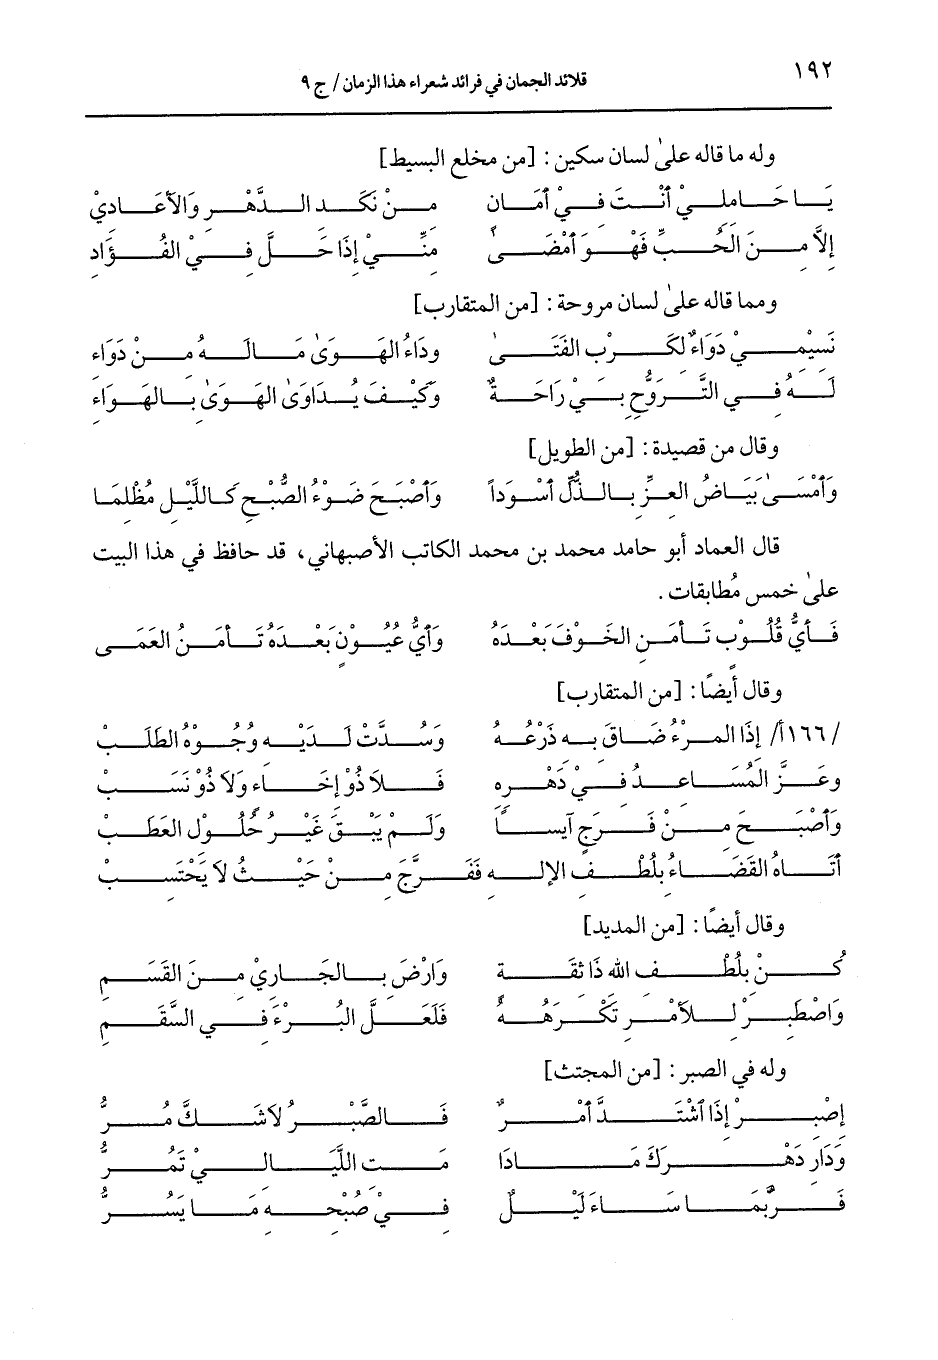 ١٩٢
قلائد الجمان في فرائد شعراء هذا الزمان / ج ٩
وله ما قاله علىٰ لسان سكين : [من مخلع البسيط]
يَا حَاملِيْ أنْتَ فِيْ أمَانِ مِنْ نَكَدِ الدَّهْرِ وَالأعَادِيْ
إلاَّ مِنَ الْحُبِّ فَهْوَ أمْضَىٰ منِّيْ إذَا حَلَّ فِيْ الفُؤَادِ
ومما قاله علىٰ لسان مروحة : [من المتقارب]
نَسِيْمِيْ دَوَاءٌ لكَرْبِ الفَتَىٰ ودَاءُ الهَوَىٰ مَا لَهُ مِنْ دَوَاءِ
لَهُ فِي التَّرَوُّحِ بِيْ رَاحَةٌ وَكَيْفَ يُدَاوَىٰ الهَوَىٰ بِالهَوَاءِ
وقال من قصيدة : [من الطويل]
وَأمْسَىٰ بَيَاضُ العِزِّ بِالذُّلِّ أسْوَداً وَأصْبَحَ ضَوْءُ الصُّبْحِ كَاللَّيْلِ مُظْلمَا
قال العماد أبو حامد محمد بن محمد الكاتب الأصبهاني، قد حافظ في هذا البيت
علىٰ خمس مُطابقات .
فَأيُّ قُلُوْبٍ تَأمَنِ الخَوْفَ بَعْدَهُ وَأيُّ عُيُوْنٍ بَعْدَهُ تَأمَنُ العَمَى
وقال أيضًا : [من المتقارب]
/١٦٦أ/ إذَا المرْءُ ضَاقَ بِهِ ذَرْعُهُ وَسُدَّتْ لَدَيْهِ وُجُوْهُ الطَلَبْ
وعَزَّ المُسَاعِدُ فِيْ دَهْرِهِ فَلاَ ذُوْ إخَاءٍ وَلاَ ذُوْ نَسَبْ
وَأصْبَحَ مِنْ فَرَجٍ آيِسًا وَلَمْ يَبْقَ غَيْرُ حُلُوْلِ العَطَبْ
أتَاهُ القَضَاءُ بلُطْفِ الإلهِ فَفَرَّجَ مِنْ حَيْثُ لاَ يَحْتَسِبْ
وقال أيضًا : [من المديد]
كُنْ بلُطْفِ الله ذَا ثقَةٍ وَارْضَ بِالجَارِيْ مِنَ القَسَمِ
وَاصْطَبِرْ لِلأمْرِ تَكْرَهُهُ فَلَعَلَّ البُرْءَ فِي السَّقَمِ
وله في الصبر : [من المجتث]
إصْبِرْ إذَا اشْتَدَّ أمْرٌ فَالصَّبْرُ لاَ شَكَّ مُرُّ
وَدَارِ دَهْرَكَ مَادَا مَتِ اللَّيَالِيْ تَمُرُّ
فَرُبَّمَا سَاءَ لَيْلٌ فِيْ صُبْحِهِ مَا يَسُرُّ